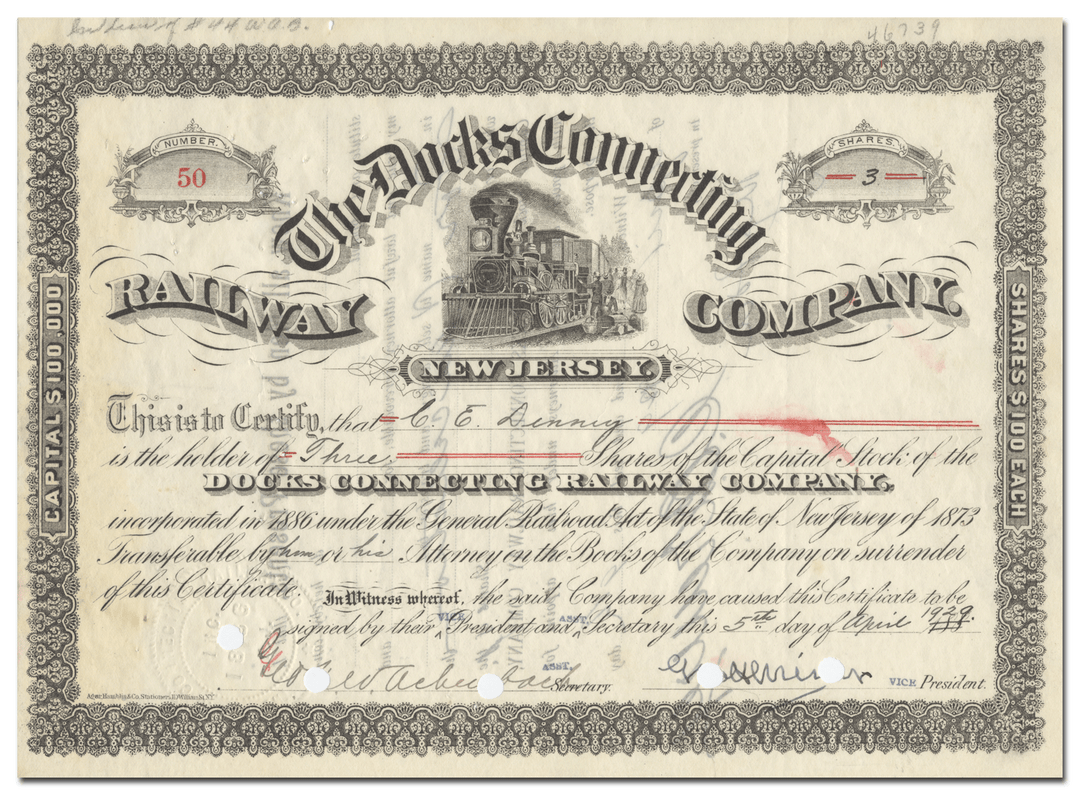 46739
NUMBER.
50
SHARES.
3
The Docks Connecting
RAILWAY COMPANY.
NEW JERSEY.
CAPITAL $100,000
SHARES $100 EACH
This is to Certify, that C. E. Denney
is the holder of Three Shares of the Capital Stock of the
DOCKS CONNECTING RAILWAY COMPANY,
incorporated in 1886 under the General Railroad Act of the State of New Jersey of 1873
Transferable by him or his Attorney on the Books of the Company on surrender
of this Certificate.
In Witness whereof, the said Company have caused this Certificate to be
signed by their VICE President and ASST. Secretary this 5th day of April 1929.
ASST. Secretary.
VICE President.